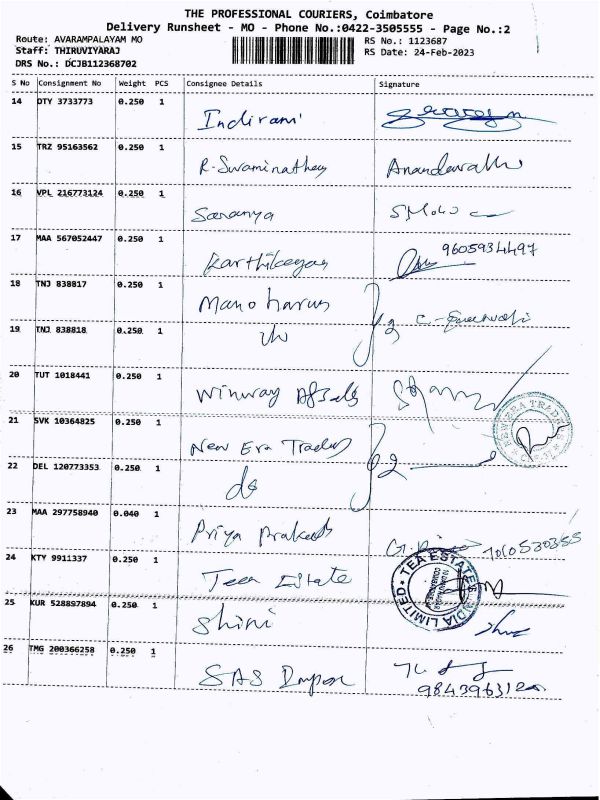 THE PROFESSIONAL COURIERS, Coimbatore
Delivery Runsheet - MO - Phone No.:0422-3505555 - Page No.:2
Route: AVARAMPALAYAM MO
RS No.: 1123687
Staff: THIRUVIYARAJ
RS Date: 24-Feb-2023
DRS No.: DCJB112368702
S No Consignment No Weight PCS Consignee Details Signature
14 DTY 3733773 0.250 1
Indirani
15 TRZ 95163562 0.250 1
R. Swaminathan
16 VPL 216773124 0.250 1
Saranya
17 MAA 567052447 0.250 1
Karthikeyan 9605934497
18 TNJ 838817 0.250 1
Manoharan
19 TNJ 838818 0.250 1
2
20 TUT 1018441 0.250 1
Winway
21 SVK 10364825 0.250 1
New Era Traders
NEW ERA TRADERS
22 DEL 120773353 0.250 1
do 2
23 MAA 297758940 0.040 1
Priya Prakash
24 KTY 9911337 0.250 1
Tea Estate
TEA ESTATES INDIA LIMITED
25 KUR 528897894 0.250 1
Shini
26 TMG 200366258 0.250 1
SAS